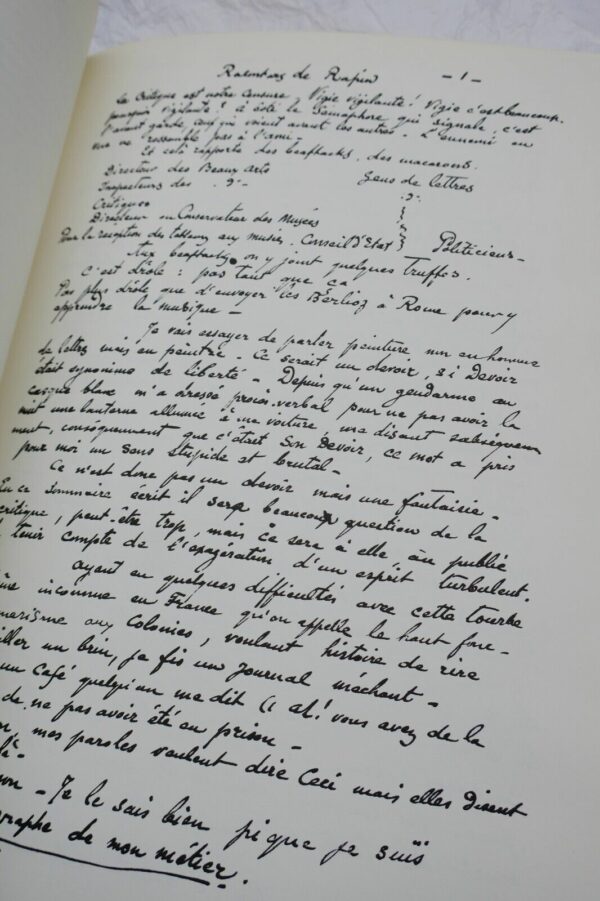 Racontars de Rapin — 1 —
La critique est notre censure, Vigie vigilante! Vigie c'est beaucoup.
pourquoi vigilante? à côté le Sémaphore qui signale, c'est
l'avant garde, ceux qui voient avant les autres — L'ennemi ou
ne ressemble pas à l'ami —
Et celà rapporte des beaftacks, des macarons.
Directeur des Beaux Arts Gens de lettres
Inspecteurs des -d°- -d°-
Critiques
Directeur ou Conservateur des Musées
Pour la réception des tableaux aux musées. Conseil d'Etat Politicien —
Aux beaftacks on y joint quelques Truffes.
C'est drôle: pas tant que ça.
Pas plus drôle que d'envoyer les Berlioz à Rome pour y
apprendre la musique —
Je vais essayer de parler peinture, non en homme
de lettres mais en peintre. Ce serait un devoir, si Devoir
était synonime de liberté — Depuis qu'un gendarme au
casque blanc m'a dressé procès-verbal pour ne pas avoir
mit une lanterne allumée à ma voiture, me disant subséquem
ment, conséquemment que c'était Son Devoir, ce mot a pris
pour moi un sens stupide et brutal —
Ce n'est donc pas un devoir mais une fantaisie —
En ce sommaire écrit il sera beaucoup question de la
critique, peut-être trop, mais ce sera à elle au publié
tenir compte de l'exagération d'un esprit turbulent.
ayant eu quelques difficultés avec cette tourbe
inconnue en France qu'on appelle le haut fonc —
aux Colonies, voulant histoire de rire
un brin, je fis un Journal méchant —
un Café quelqu'un me dit (( ah! vous avez de la
de ne pas avoir été en prison —
mes paroles veulent dire Ceci mais elles disent
Je le sais bien que je suis
graphe de mon métier.